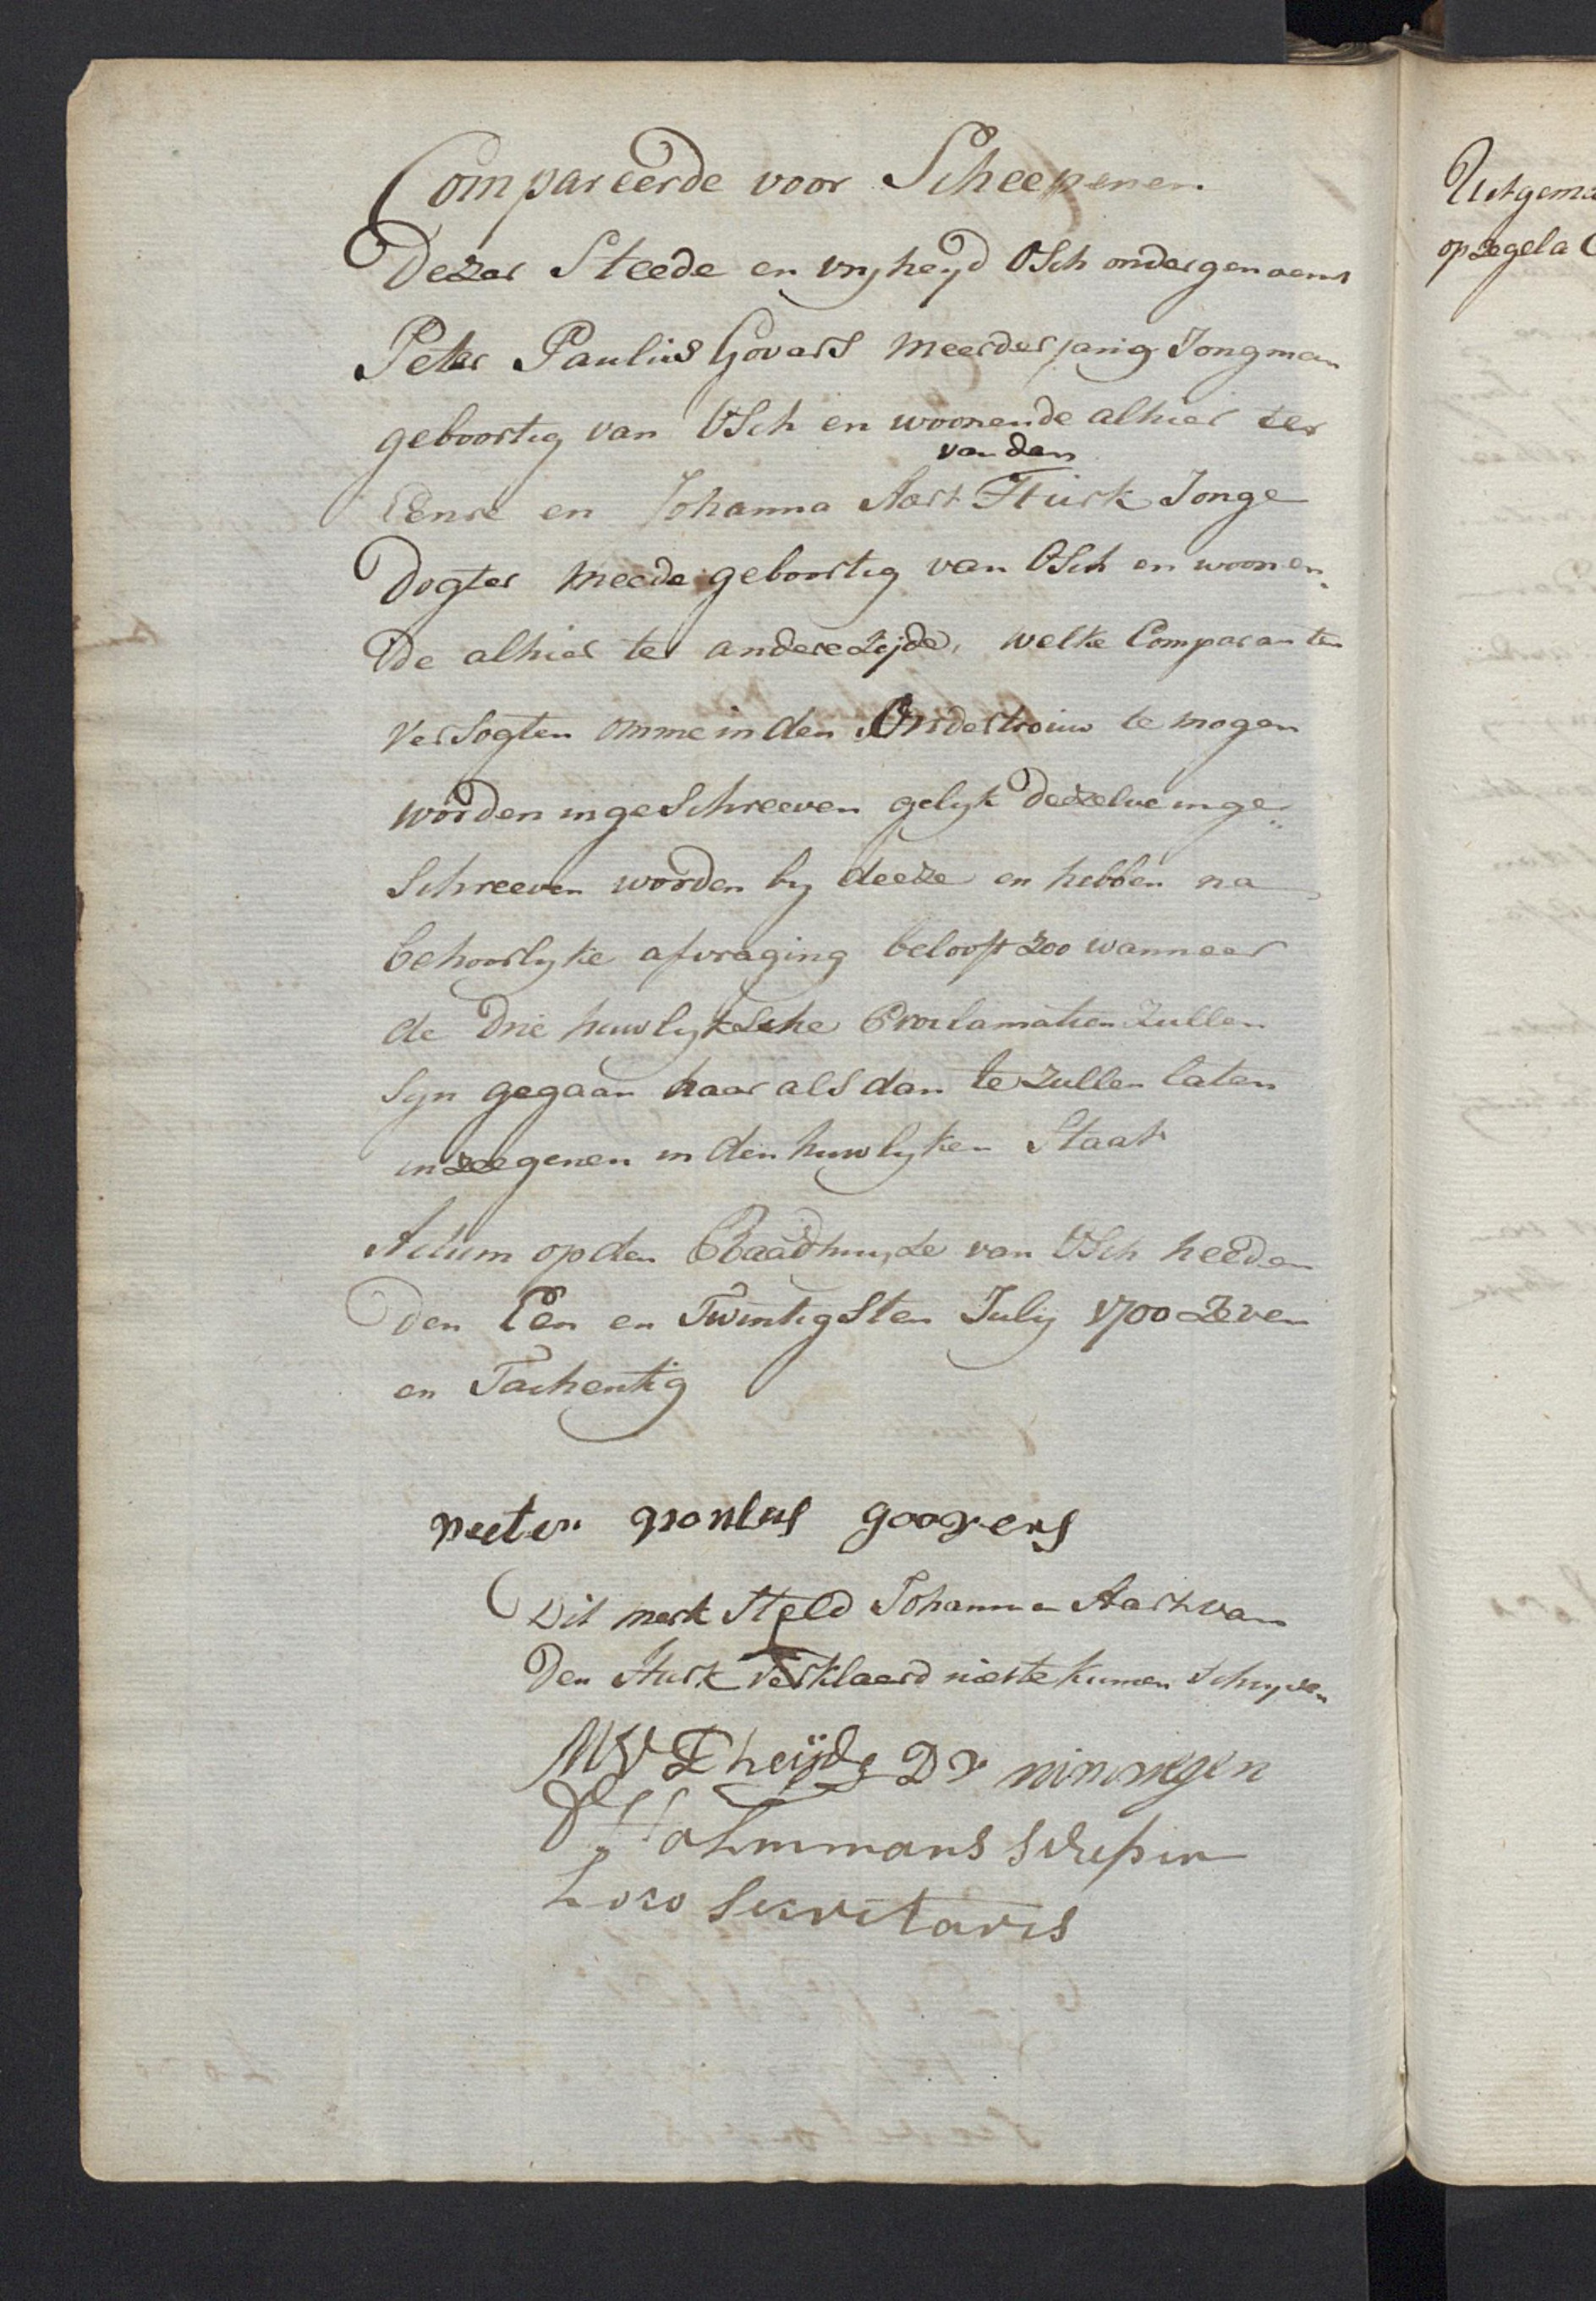 Compareerde voor Scheepenen
Dezer Steede en vryheyd OSch ondergenoemt
Peter Paulus Govers meerderjarig Jongman
geboortig van OSch en woonende alhier ter
van den
Eenre en Johanna Aart Sturk Jonge
Dogter meede geboortig van OSch en woonen
de alhier ter andere zijde, welke Comparanten
versogten omme in den Ondertrouw te mogen
worden ingeschreeven gelyk dezelve inge
schreeven worden by deeze en hebben na
behoorlyke afvraging belooft zoo wanneer
de drie huwlyksche Proclamatien zullen
syn gegaan haar als dan te zullen laten
inzeegenen in den huwlyken Staat
Actum op den Raadhuyze van OSch heeden
Den Een en Twintigsten July 1700 Zeven
en Tachentig
peeter povlus goovers
Dit merk steld Johanna Aart van
Den Sturk verklaard niet te kunnen schryven
D V nimwegen
schepen
Loco Secretaris
Uitgema
op zegel a